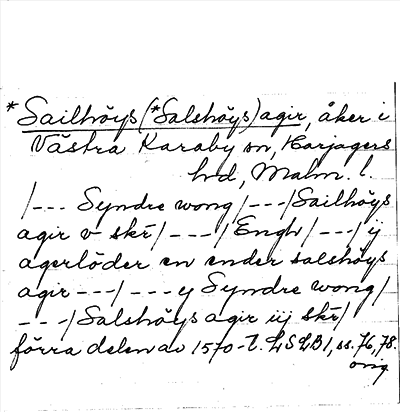 *Sailhöys (*Salshöys) agir, åker i
Västra Karaby sn, Harjagers
hd, Malm. l.
/--- Syndre wong /---/ Sailhöys
agir v skr/ ---/ Engh/ ---/ ij
agerlöder en ender salshöys
agir ---/ --- y Syndre wong/
---/ Salshöys agir iij skr/
förra delen av 1570-t. LSLB1, ss. 76, 78.
orig.